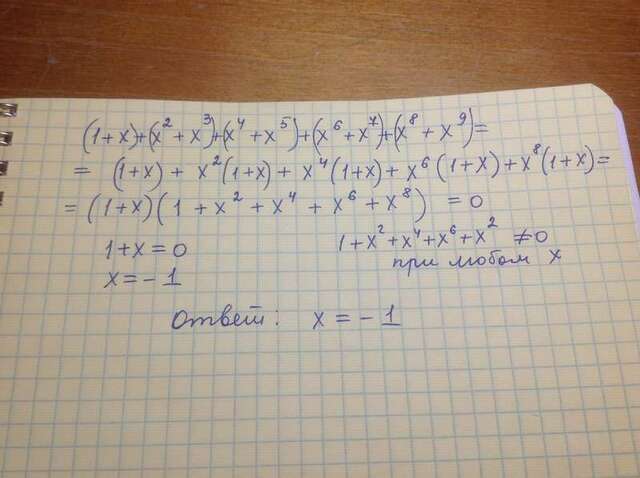 (1+x)+(x²+x³)+(x⁴+x⁵)+(x⁶+x⁷)+(x⁸+x⁹)=
= (1+x) + x²(1+x) + x⁴(1+x) + x⁶(1+x) + x⁸(1+x)=
= (1+x)(1+x²+x⁴+x⁶+x⁸) = 0
1+x=0
x=-1
1+x²+x⁴+x⁶+x² ≠0
при любом x
Ответ: x = -1